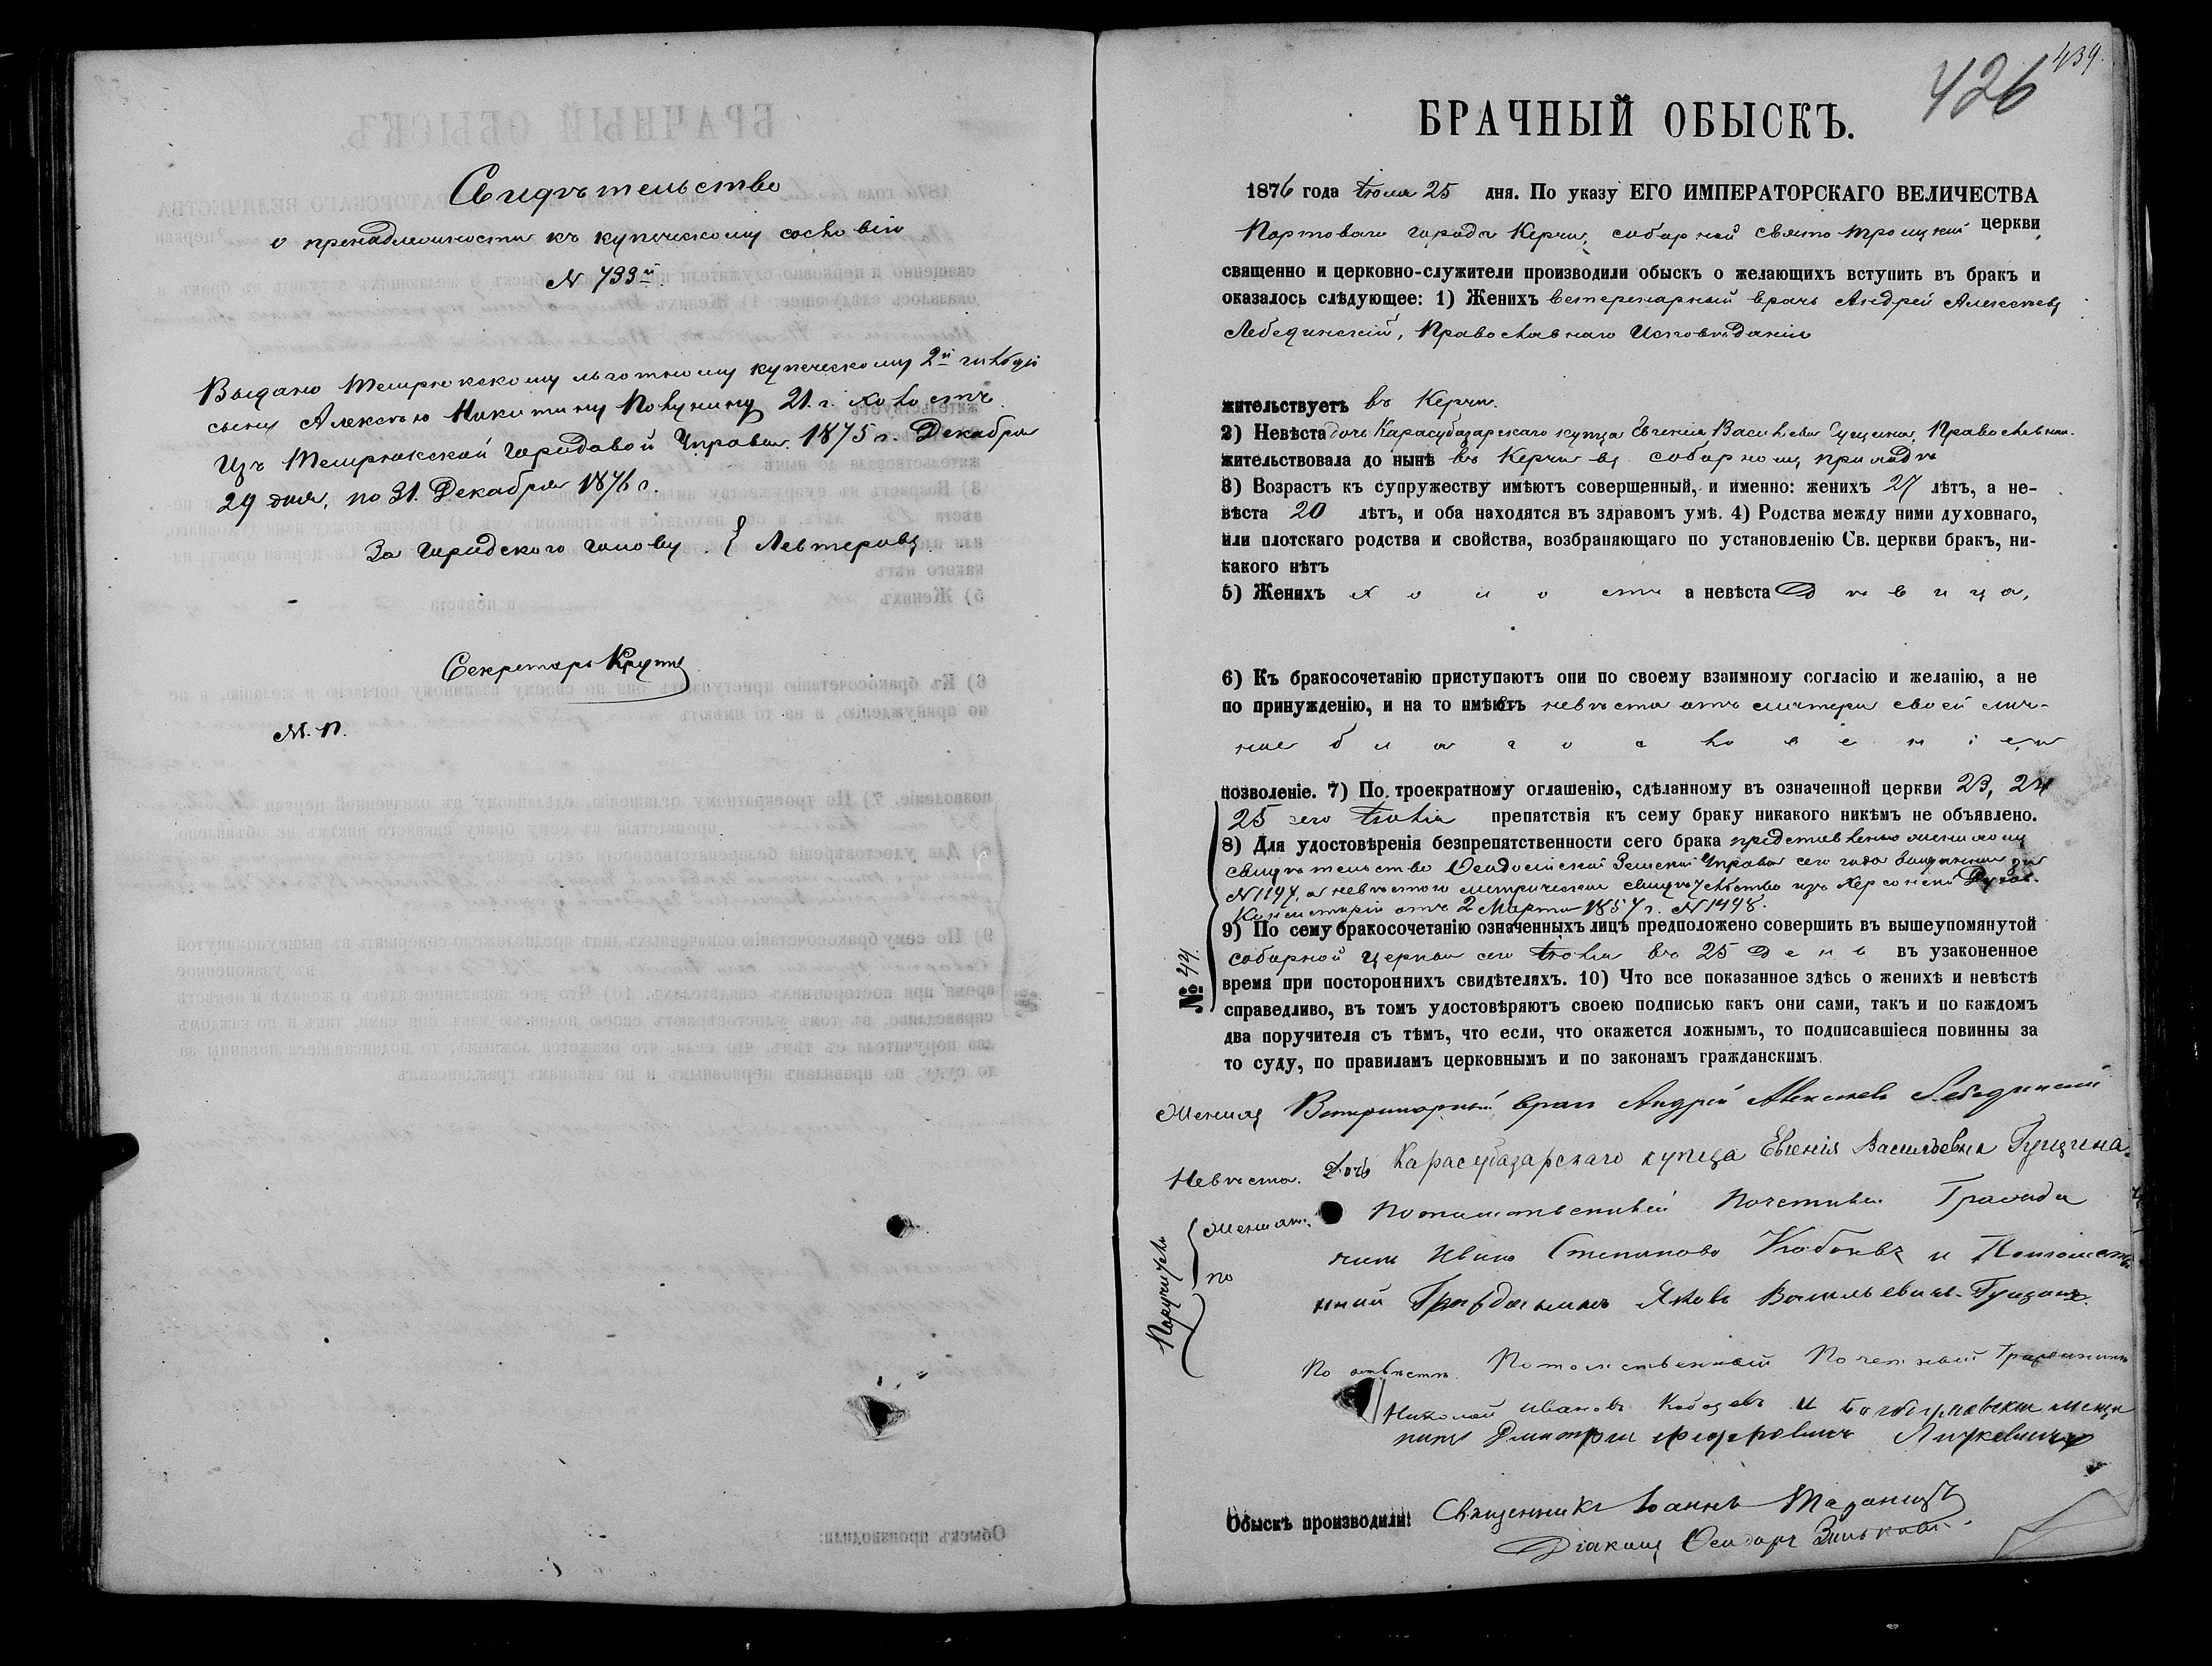 Свидѣтельство
о пренадлежности къ купеческому сословію
N 733й
Выдано Темрюкскому льготному купеческому 2й гильдіи
сыну Алексѣю Никитину 21. г. холостъ.
Изъ Темрюкской Городовой Управы. 1875 г. Декабря
29 дня, по 31. Декабря 1876 г.
За Городского голову. Левтеровъ.
Секретарь
М. П.
439.
426
БРАЧНЫЙ ОБЫСКЪ.
1876 года Іюля 25 дня. По указу ЕГО ИМПЕРАТОРСКАГО ВЕЛИЧЕСТВА
Портоваго города Керчи, соборной свято троицкой церкви
священно и церковно-служители производили обыскъ о желающихъ вступить въ бракъ и
оказалось слѣдующее: 1) Женихъ ветеренарный врачъ Андрей Алексѣевъ
Лебединскій, Православнаго Исповѣданія
жительствуетъ въ Керчи.
2) Невѣста дочь Карасубазарскаго купца Евгенія Васильева Гущина, Православнаго.
жительствовала до нынѣ въ Керчи въ соборномъ приходѣ
3) Возрастъ къ супружеству имѣютъ совершенный, и именно: женихъ 27 лѣтъ, а не-
вѣста 20 лѣтъ, и оба находятся въ здравомъ умѣ. 4) Родства между ними духовнаго,
или плотскаго родства и свойства, возбраняющаго по установленію Св. церкви бракъ, ни-
какого нѣтъ
5) Женихъ холостъ а невѣста Дѣвица,
6) Къ бракосочетанію приступаютъ они по своему взаимному согласію и желанію, а не
по принужденію, и на то имѣютъ невѣста отъ матери своей лич-
ное благословеніе
позволеніе. 7) По троекратному оглашенію, сдѣланному въ означенной церкви 23, 24
25 сего Іюля препятствія къ сему браку никакого никѣмъ не объявлено.
8) Для удостовѣренія безпрепятственности сего брака представлено женихомъ
свидѣтельство Ѳеодосійской Земской Управы сего года выданное за
N 1197, а невѣстою метрическое свидѣтельство изъ Херсонской Духов.
Консисторіи отъ 2 Марта 1857 г. N 1498.
9) По сему бракосочетанію означенныхъ лицъ предположено совершить въ вышеупомянутой
соборной церкви сего Іюля въ 25 день въ узаконенное
время при постороннихъ свидѣтеляхъ. 10) Что все показанное здѣсь о женихѣ и невѣстѣ
справедливо, въ томъ удостовѣряютъ своею подписью какъ они сами, такъ и по каждомъ
два поручителя съ тѣмъ, что если, что окажется ложнымъ, то подписавшіеся повинны за
то суду, по правиламъ церковнымъ и по законамъ гражданскимъ.
№ 44.
Женихъ Ветеринарный врачъ Андрей Алексѣевъ Лебединскій
Невѣста. Дочь Карасубазарскаго купца Евгенія Васильевна Гущина.
Поручители
по Женихѣ. Потомственный Почетный Гражда
нинъ Иванъ Степановъ и Потомств
нный Гражданинъ Яковъ Васильевичъ Гущинъ.
По невѣстѣ. Потомственный Почетный Гражданинъ
Николай Ивановъ и мещ
нинъ Дмитрій
Обыскъ производили: Священникъ Іоаннъ
Діаконъ Ѳеодоръ Зиньковъ.